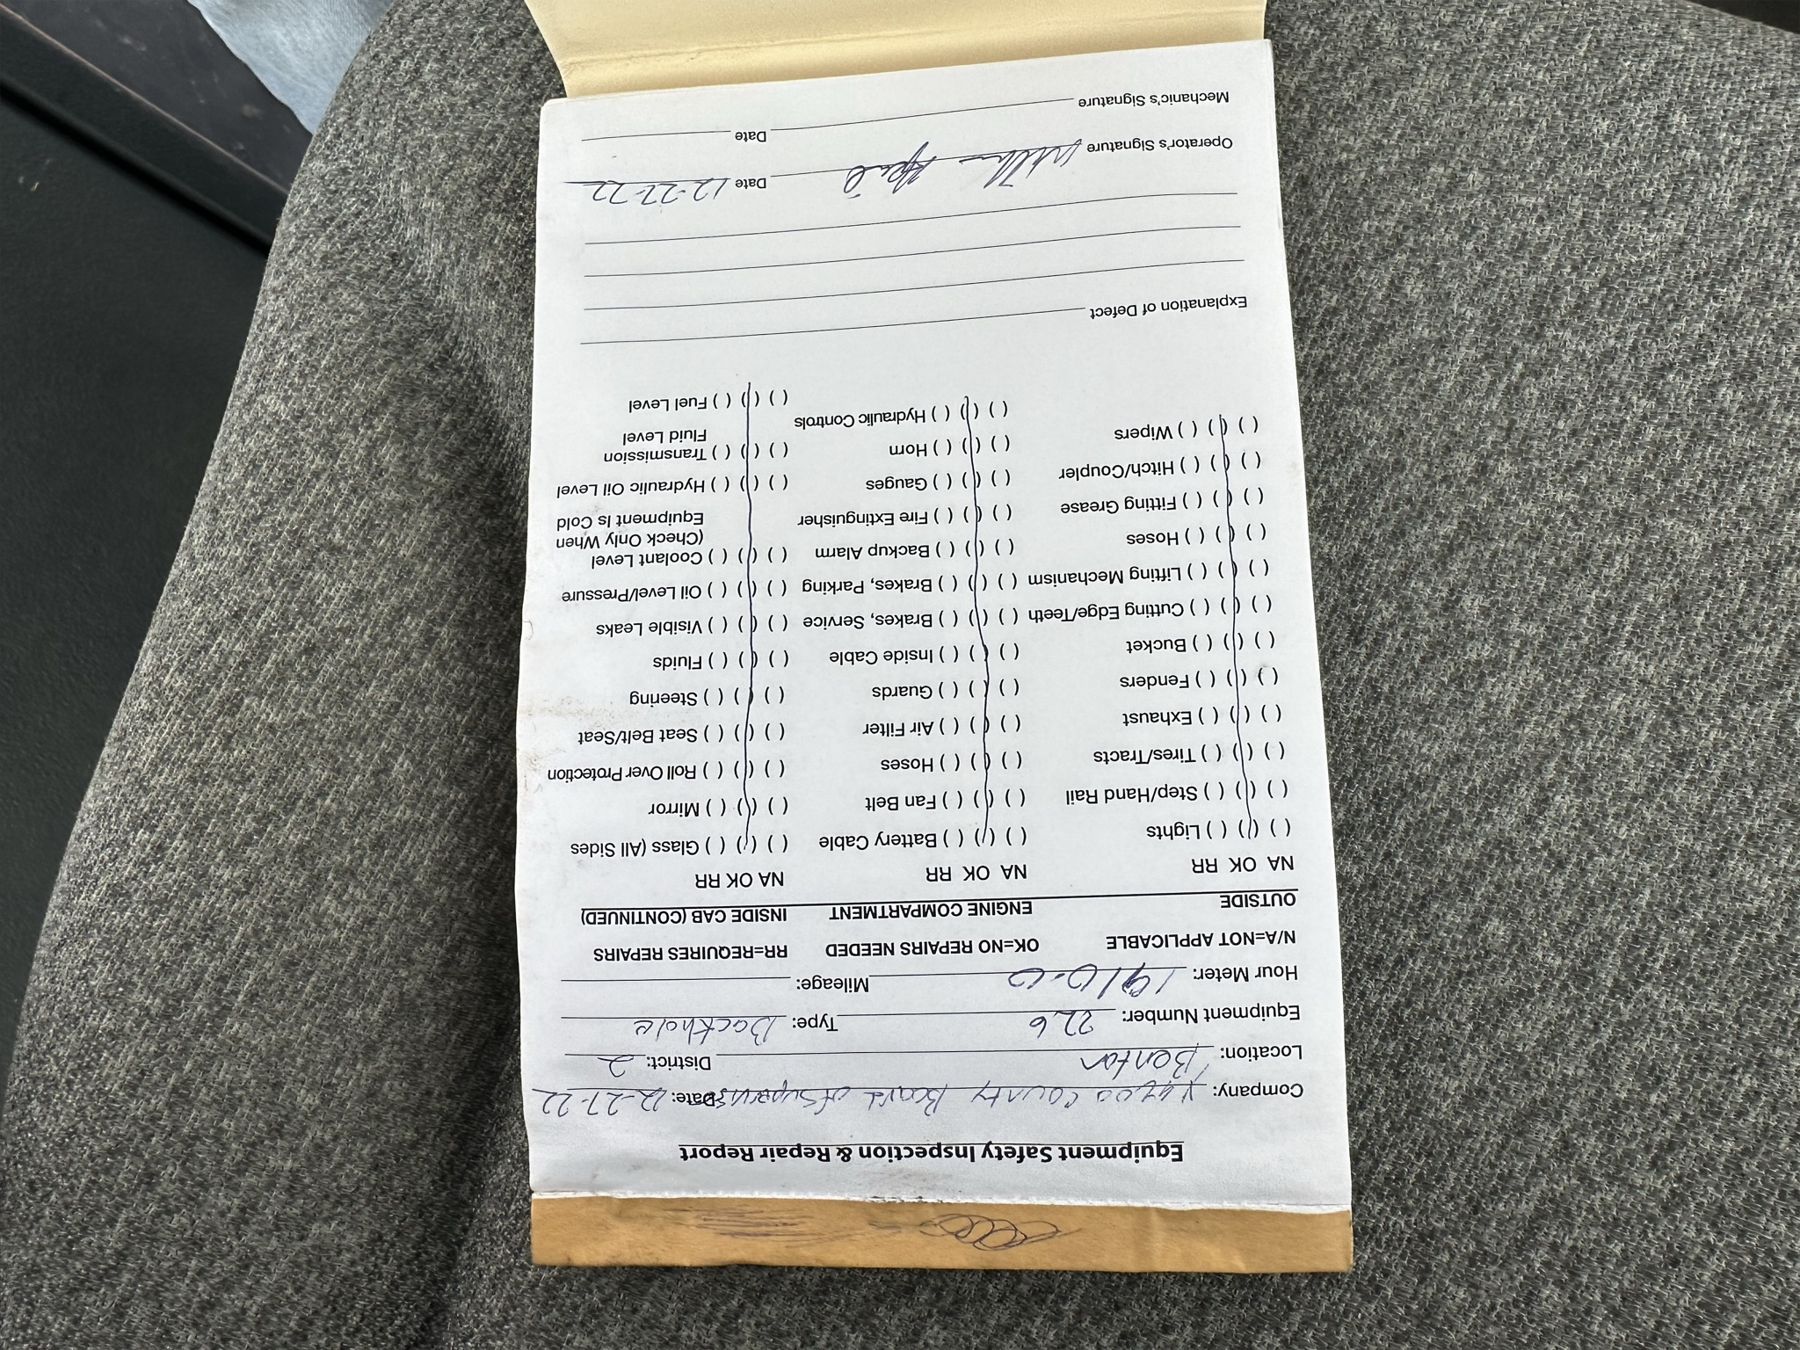 Equipment Safety Inspection & Repair Report
Company: Yazoo County Board of Supervis Date: 12-27-22
Location: Benton District: 2
Equipment Number: 226 Type: Backhole
Hour Meter: 1910.0 Mileage:
N/A=NOT APPLICABLE OK=NO REPAIRS NEEDED RR=REQUIRES REPAIRS
OUTSIDE ENGINE COMPARTMENT INSIDE CAB (CONTINUED)
NA OK RR NA OK RR NA OK RR
( ) ( ) ( ) Lights ( ) ( ) ( ) Battery Cable ( ) ( ) ( ) Glass (All Sides
( ) ( ) ( ) Step/Hand Rail ( ) ( ) ( ) Fan Belt ( ) ( ) ( ) Mirror
( ) ( ) ( ) Tires/Tracts ( ) ( ) ( ) Hoses ( ) ( ) ( ) Roll Over Protection
( ) ( ) ( ) Exhaust ( ) ( ) ( ) Air Filter ( ) ( ) ( ) Seat Belt/Seat
( ) ( ) ( ) Fenders ( ) ( ) ( ) Guards ( ) ( ) ( ) Steering
( ) ( ) ( ) Bucket ( ) ( ) ( ) Inside Cable ( ) ( ) ( ) Fluids
( ) ( ) ( ) Cutting Edge/Teeth ( ) ( ) ( ) Brakes, Service ( ) ( ) ( ) Visible Leaks
( ) ( ) ( ) Lifting Mechanism ( ) ( ) ( ) Brakes, Parking ( ) ( ) ( ) Oil Level/Pressure
( ) ( ) ( ) Hoses ( ) ( ) ( ) Backup Alarm ( ) ( ) ( ) Coolant Level
(Check Only When
( ) ( ) ( ) Fitting Grease ( ) ( ) ( ) Fire Extinguisher Equipment Is Cold
( ) ( ) ( ) Hitch/Coupler ( ) ( ) ( ) Gauges ( ) ( ) ( ) Hydraulic Oil Level
( ) ( ) ( ) Wipers ( ) ( ) ( ) Horn ( ) ( ) ( ) Transmission
Fluid Level
( ) ( ) ( ) Hydraulic Controls ( ) ( ) ( ) Fuel Level
Explanation of Defect
Operator's Signature Date 12-27-22
Mechanic's Signature Date